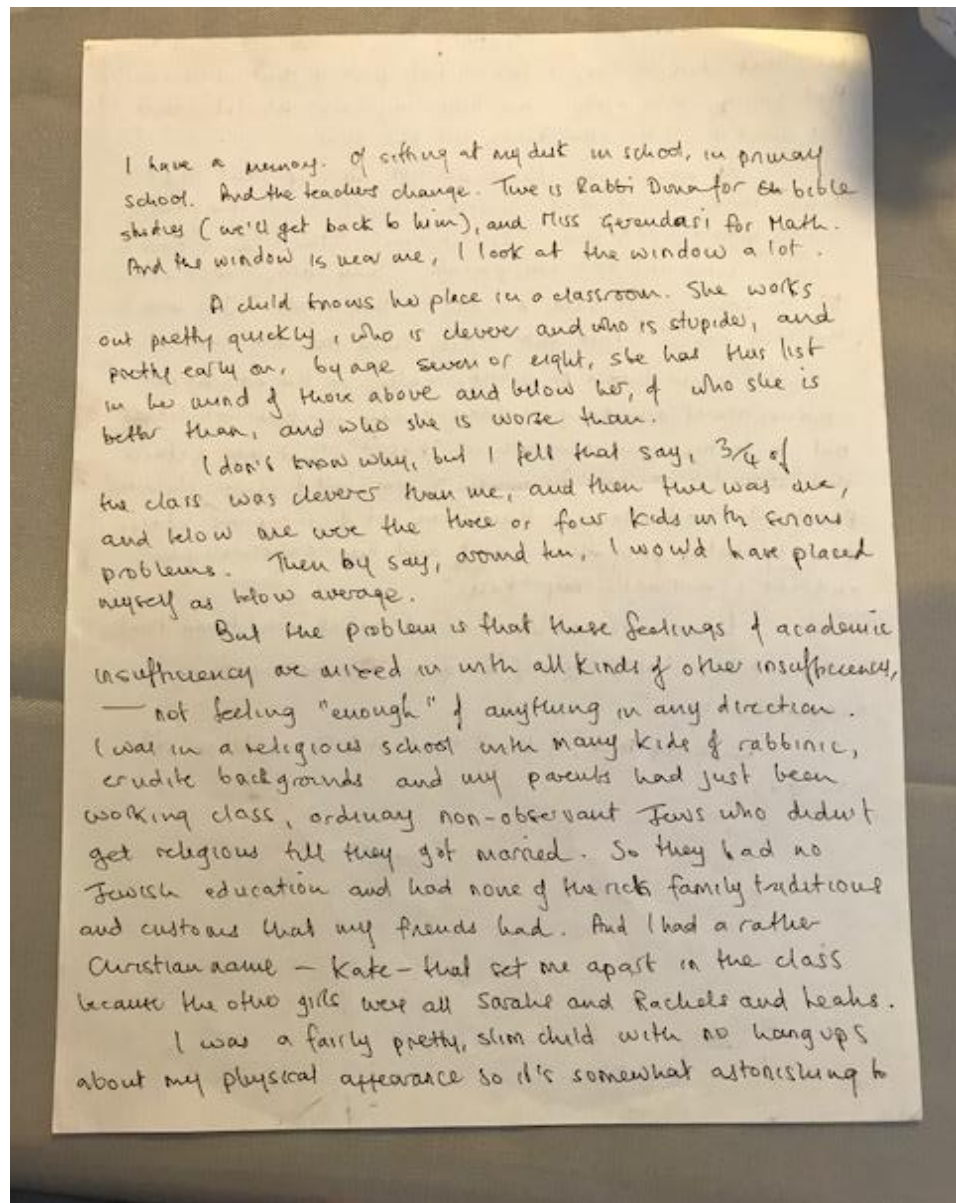 I have a memory. Of sitting at my desk in school, in primary
school. And the teachers change. There is Rabbi Duna for bible
studies (we'll get back to him), and Miss Gerendasi for Math.
And the window is near me, I look at the window a lot.
A child knows her place in a classroom. She works
out pretty quickly, who is clever and who is stupider, and
pretty early on, by age seven or eight, she has this list
in her mind of those above and below her, of who she is
better than, and who she is worse than.
I don't know why, but I felt that say, 3/4 of
the class was cleverer than me, and then there was me,
and below me were the three or four kids with serious
problems. Then by say, around ten, I would have placed
myself as below average.
But the problem is that these feelings of academic
insufficiency are mixed in with all kinds of other insufficiences,
— not feeling "enough" of anything in any direction.
I was in a religious school with many kids of rabbinic,
erudite backgrounds and my parents had just been
working class, ordinary non-observant Jews who didn't
get religious till they got married. So they had no
Jewish education and had none of the rich family traditions
and customs that my friends had. And I had a rather
Christian name – Kate – that set me apart in the class
because the other girls were all Sarahs and Rachels and Leahs.
I was a fairly pretty, slim child with no hangups
about my physical appearance so it's somewhat astonishing to